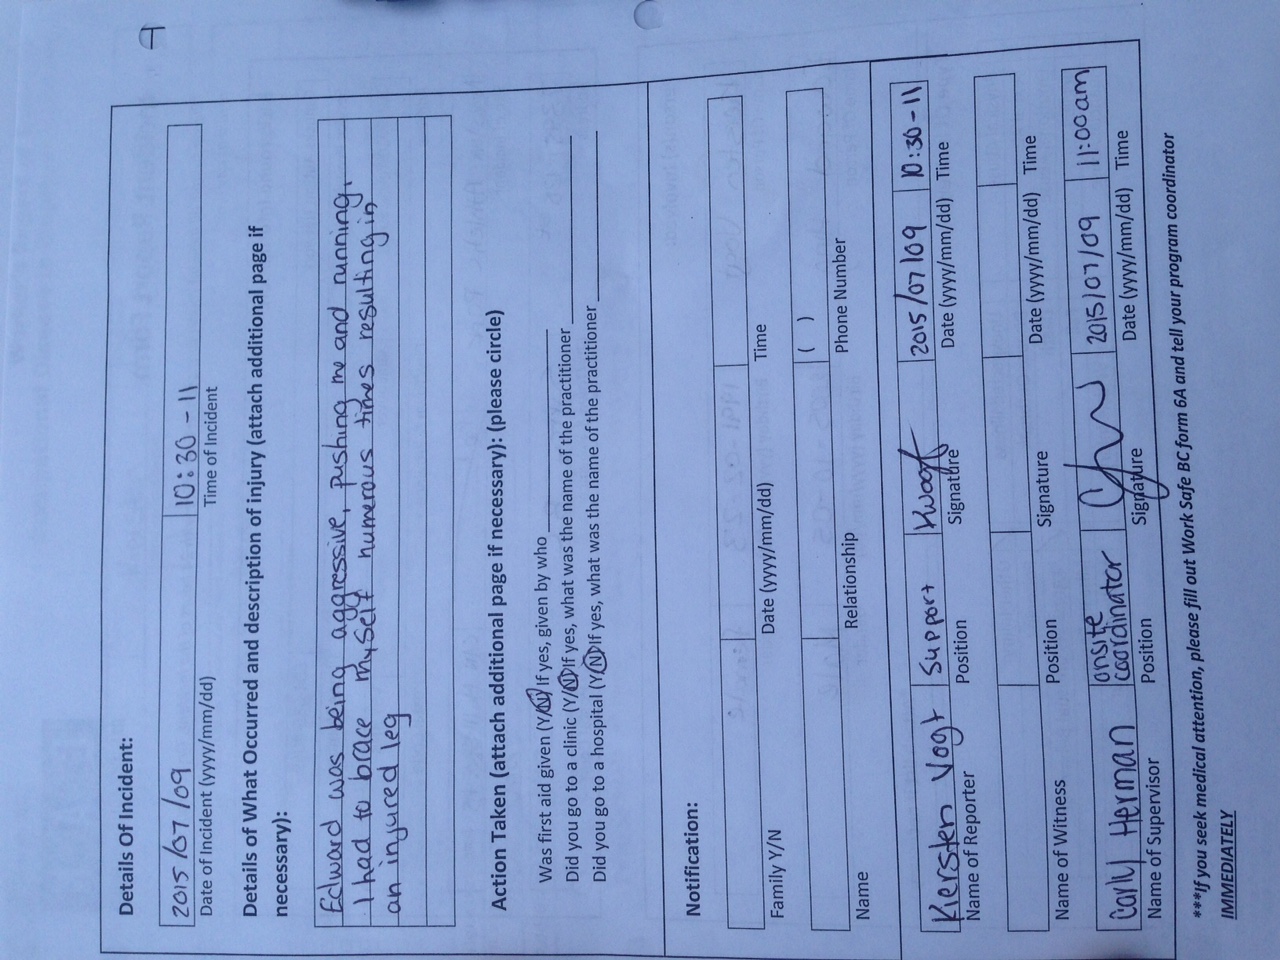 Details Of Incident:
2015/07/09 10:30 - 11
Date of Incident (yyyy/mm/dd) Time of Incident
Details of What Occurred and description of injury (attach additional page if
necessary):
Edward was being aggressive, pushing me and running,
I had to brace myself numerous times resulting in
an injured leg
Action Taken (attach additional page if necessary): (please circle)
Was first aid given (Y/N) If yes, given by who
Did you go to a clinic (Y/N) If yes, what was the name of the practitioner
Did you go to a hospital (Y/N) If yes, what was the name of the practitioner
Notification:
Family Y/N Date (yyyy/mm/dd) Time
( )
Name Relationship Phone Number
Kiersten Vogt Support KVogt 2015/07/09 10:30-11
Name of Reporter Position Signature Date (yyyy/mm/dd) Time
Name of Witness Position Signature Date (yyyy/mm/dd) Time
Carly Herman onsite coordinator 2015/07/09 11:00am
Name of Supervisor Position Signature Date (yyyy/mm/dd) Time
***If you seek medical attention, please fill out Work Safe BC form 6A and tell your program coordinator
IMMEDIATELY